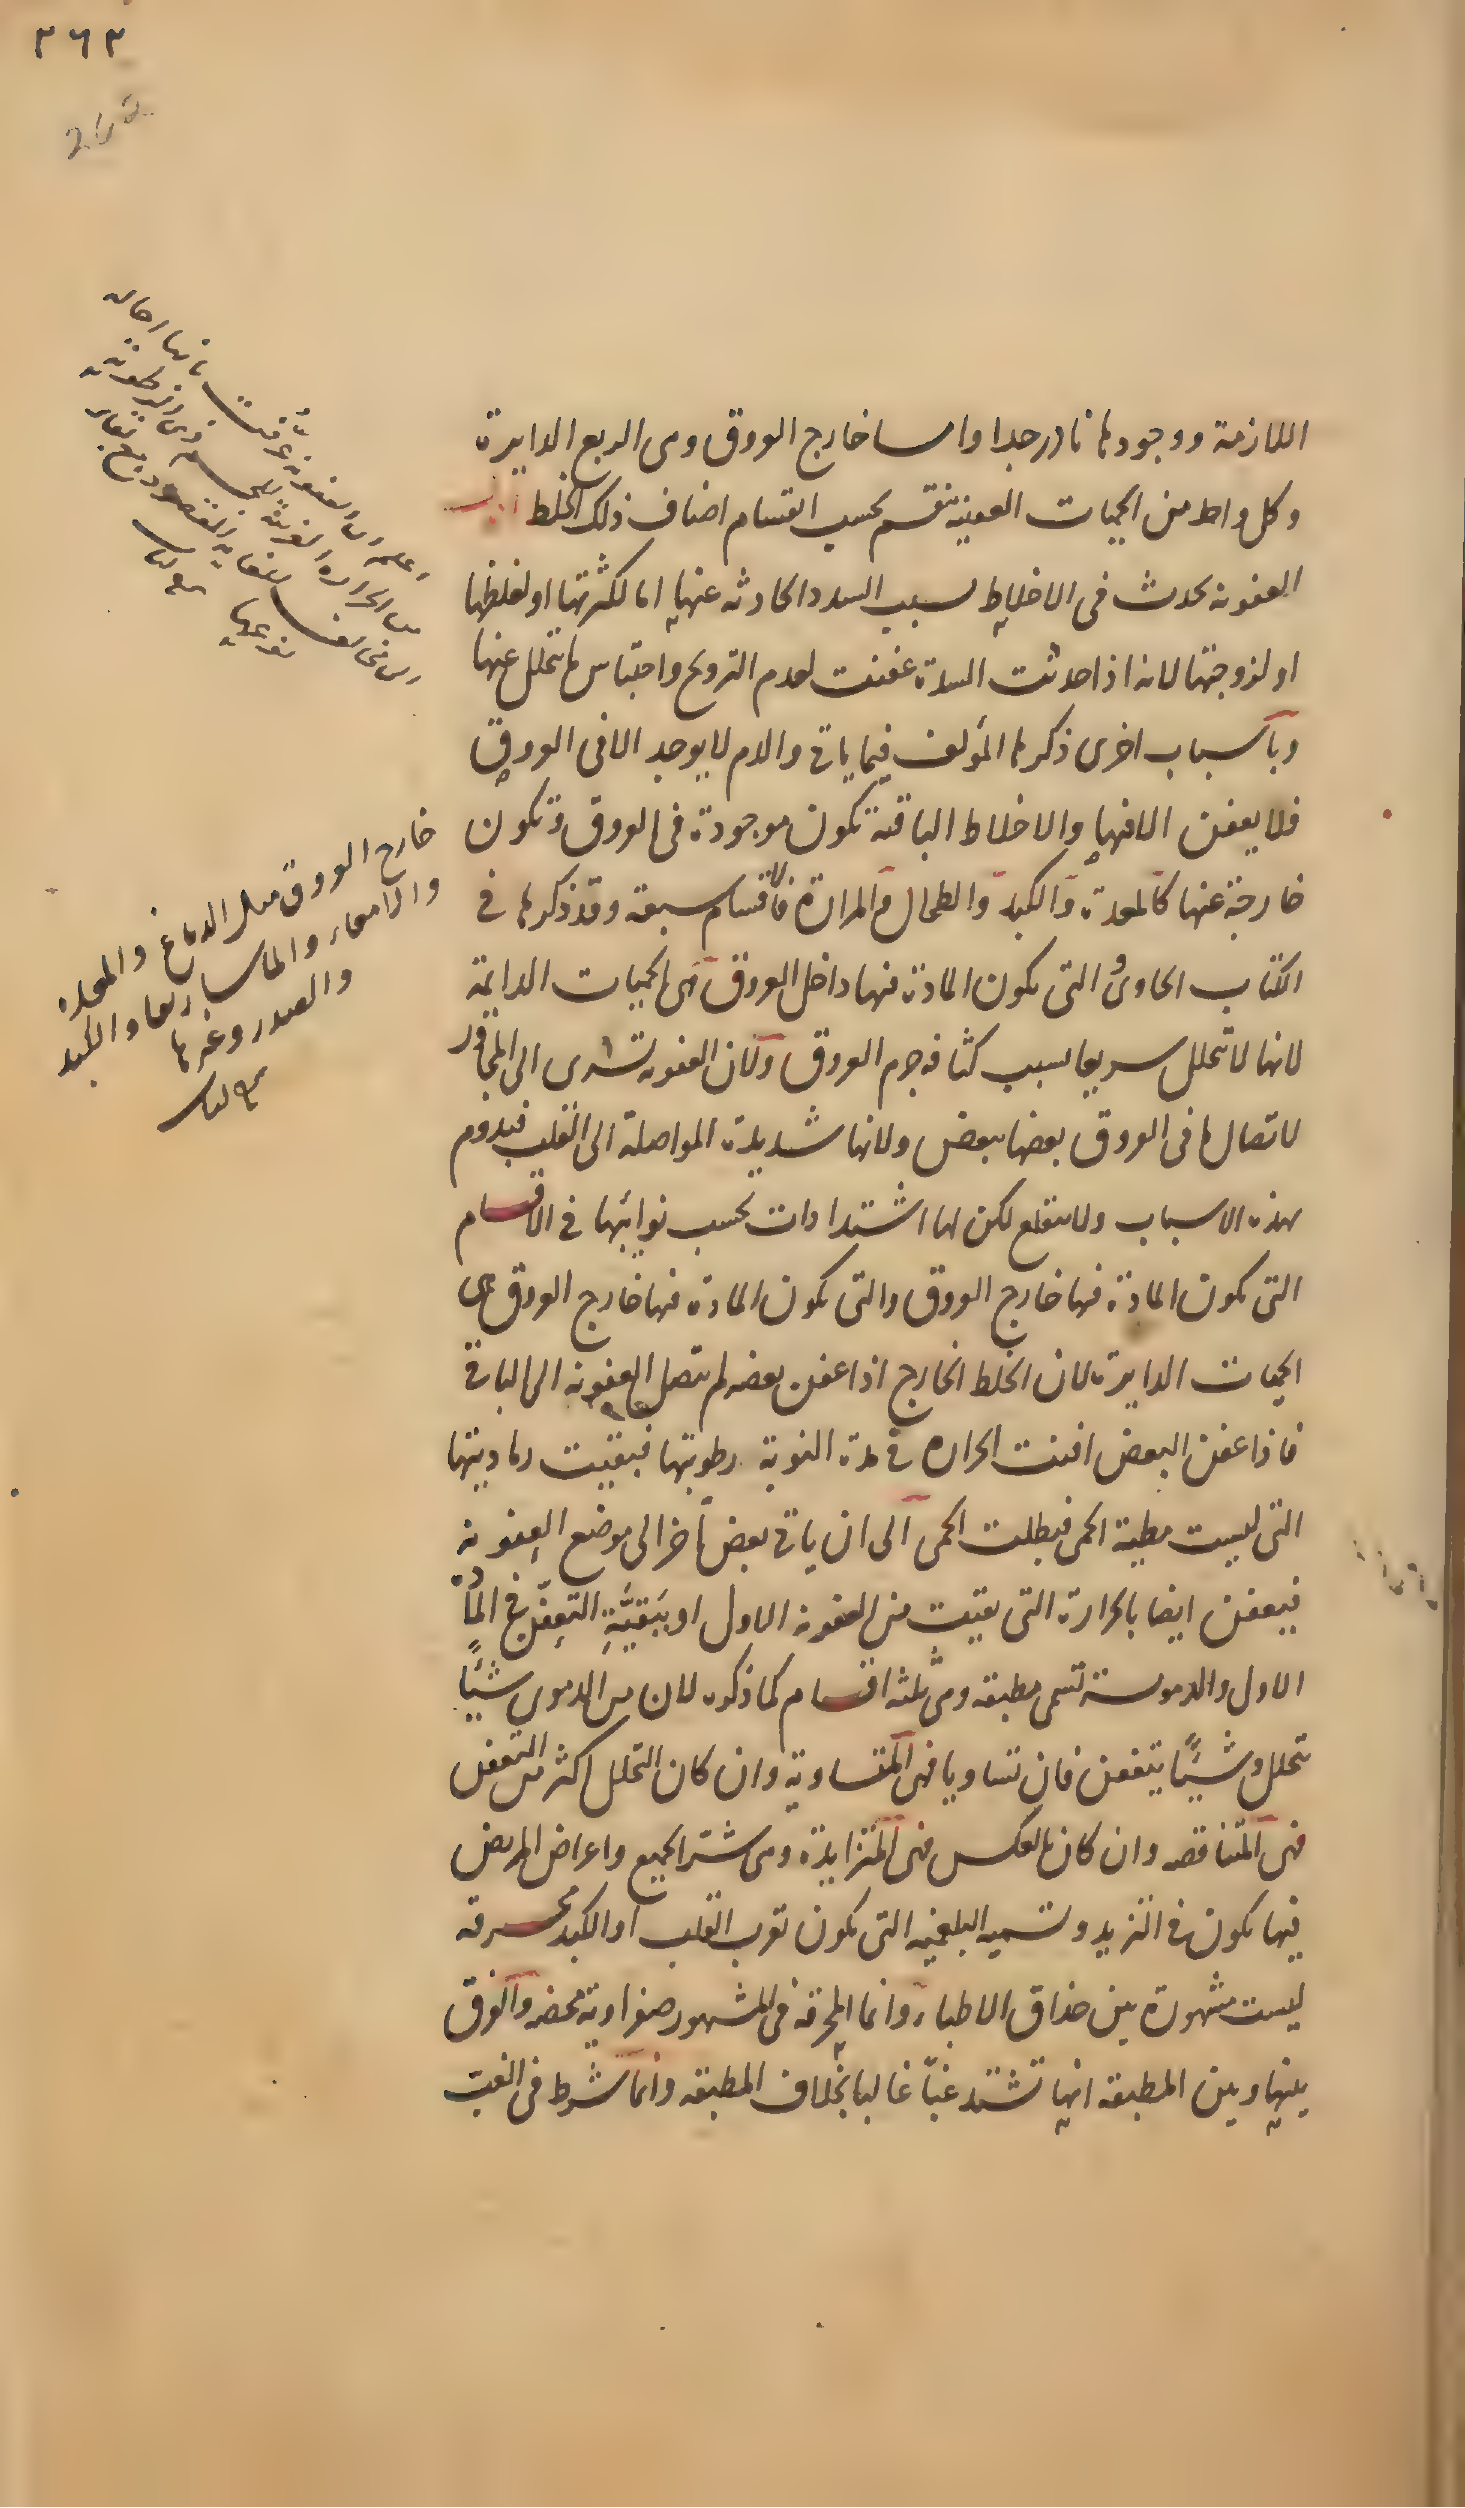 ٢٦٢
262
اعلم ان العفونة عرفت بانها احالة
من الحرارة الغريبة للجسم ذى الرطوبة
الى مخالفة الغاية المقصودة مع بقاء
نوعها
اللازمة ووجودها نادر جدا واما خارج العروق وهى الربع الدايرة
وكل واحد من الحميات العفنية ينقسم بحسب انقسام اصناف ذلك الخلط
العفونة يحدث فى الاخلاط بسبب السدد الحادثه عنها اما لكثرتها او لغلظها
او لزوجتها لانه اذا حدثت السدة عفنت لعدم الترويح واحتباس ما يتحلل عنها
وباسباب اخرى ذكرها المؤلف فيما ياتى والدم لا يوجد الا فى العروق
فلا يعفن الا فيها والاخلاط الباقية تكون موجودة فى العروق وتكون
خارجة عنها كالمعدة والكبد والطحال والمرارة فالاقسام سبعة وقد ذكرها فى
الكتاب الحاوى والتى يكون المادة فيها داخل العروق هى الحميات الدايمة
لانها لا تتحلل سريعا بسبب كثافة جرم العروق ولان العفونة تسرى الى المجاور
لاتصالها فى العروق بعضها ببعض ولانها شديدة المواصلة الى القلب فيدوم
بهذه الاسباب ولا يقلع لكن لها اشتدادات بحسب نوايبها فى الاقسام
التى يكون المادة فيها خارج العروق والتى يكون المادة فيها خارج العروق هى
الحميات الدايرة لان الخلط الخارج اذا عفن بعضه لم يتصل العفونة الى الباقى
فاذا عفن البعض افنت الحرارة فى مدة النوبة رطوبتها فبقيت رماديتها
التى ليست مطية الحمى فبطلت الحمى الى ان ياتى بعض آخر الى موضع العفونة
فيعفن ايضا بالحرارة التى بقيت من العفونة الاول او ببقية التعفن فى المادة
الاول والدموية تسمى مطبقة وهى ثلثة اقسام كما ذكره لان من الدموى شيئا
يتحلل وشيئا يتعفن فان تساويا فهى المتساوية وان كان التحلل اكثر من التعفن
فهى المتناقصه وان كان بالعكس فهى المتزايدة وهى شر الجميع واعراض المريض
فيها يكون فى التزيد وتسمية البلغمية التى يكون بقرب القلب او الكبد محرقة
ليست مشهورة بين حذاق الاطباء وانما المحرقة فى المشهور صفراوية محضه والفرق
بينها وبين المطبقة انها تشتد غبا غالبا بخلاف المطبقة وانما شرط فى الغب
خارج العروق مثل الدماغ والمعدة
والامعاء والماساريقا والكبد
والصدر وغيرها